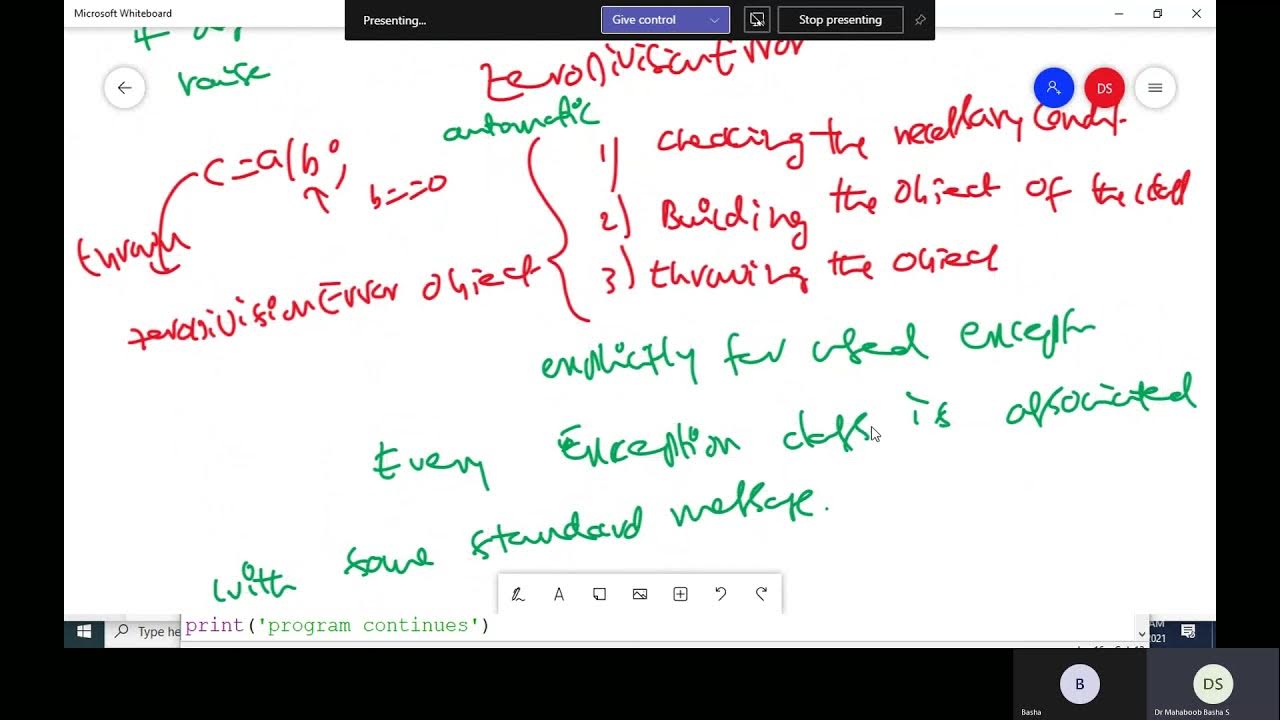 Microsoft Whiteboard
Presenting...
Give control
Stop presenting
raise
ZeroDivisionError
DS
automatic
c=a/b;
b==0
1) checking the necessary condit
2) Building the object of the class
3) throwing the object
through
zerodivisionError object
explicitly for used
Every Exception class is associated
with some standard message.
A
print('program continues')
Type he
AM
2021
B
DS
Basha
Dr Mahaboob Basha S